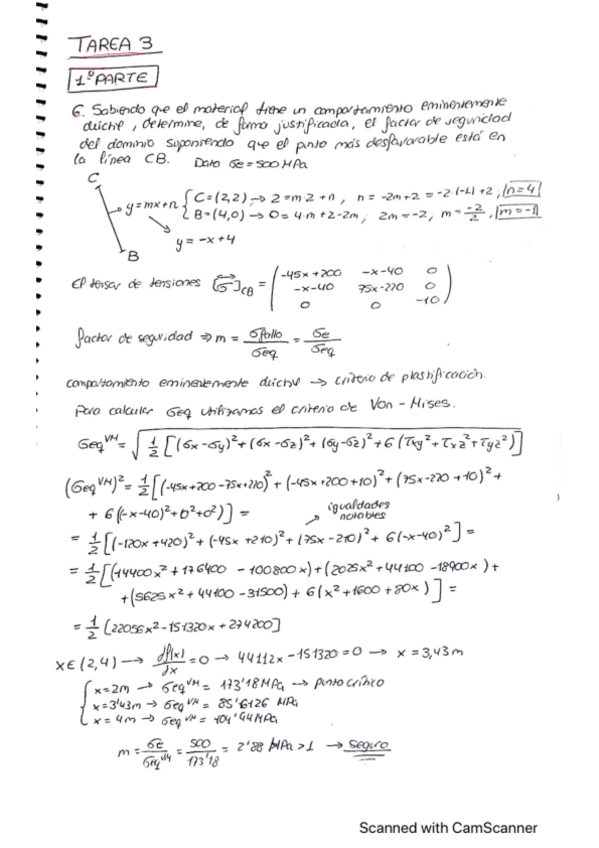 TAREA 3
1º PARTE
6. Sabiendo que el material tiene un comportamiento eminentemente
dúctil, determine, de forma justificada, el factor de seguridad
del dominio suponiendo que el punto más desfavorable está en
la línea CB. Dato σe = 500 MPa
C
y=mx+n { C=(2,2) → 2=m·2+n, n=-2m+2=-2(-1)+2, n=4
B=(4,0) → 0=4·m+2-2m; 2m=-2, m=-2/2, m=-1
y=-x+4
B
El tensor de tensiones [σ]CB = ( -45x+200 -x-40 0
-x-40 75x-220 0
0 0 -10 )
factor de seguridad ⇒ m = σfallo/σeq = σe/σeq
comportamiento eminentemente dúctil → criterio de plastificación.
Para calcular σeq utilizamos el criterio de Von-Mises.
σeq^VM = √(1/2 [(σx-σy)²+(σx-σz)²+(σy-σz)²+6(τxy²+τxz²+τyz²)])
(σeq^VM)² = 1/2 [(-45x+200-75x+220)²+(-45x+200+10)²+(75x-220+10)²+
+ 6((-x-40)²+0²+0²)] =
igualdades
notables
= 1/2 [(-120x+420)²+(-45x+210)²+(75x-210)²+6(-x-40)²] =
= 1/2 [(14400x²+176400-100800x)+(2025x²+44100-18900x)+
+(5625x²+44100-31500)+6(x²+1600+80x)] =
= 1/2 [22056x²-151320x+274200]
x∈(2,4) → df(x)/dx =0 → 44112x-151320=0 → x=3,43m
{ x=2m → σeq^VM = 173'18MPa → punto crítico
x=3'43m → σeq^VM = 85'6126 MPa
x=4m → σeq^VM = 104'94MPa
m = σe/σeq^VM = 500/173'18 = 2'88 MPa >1 → seguro
Scanned with CamScanner